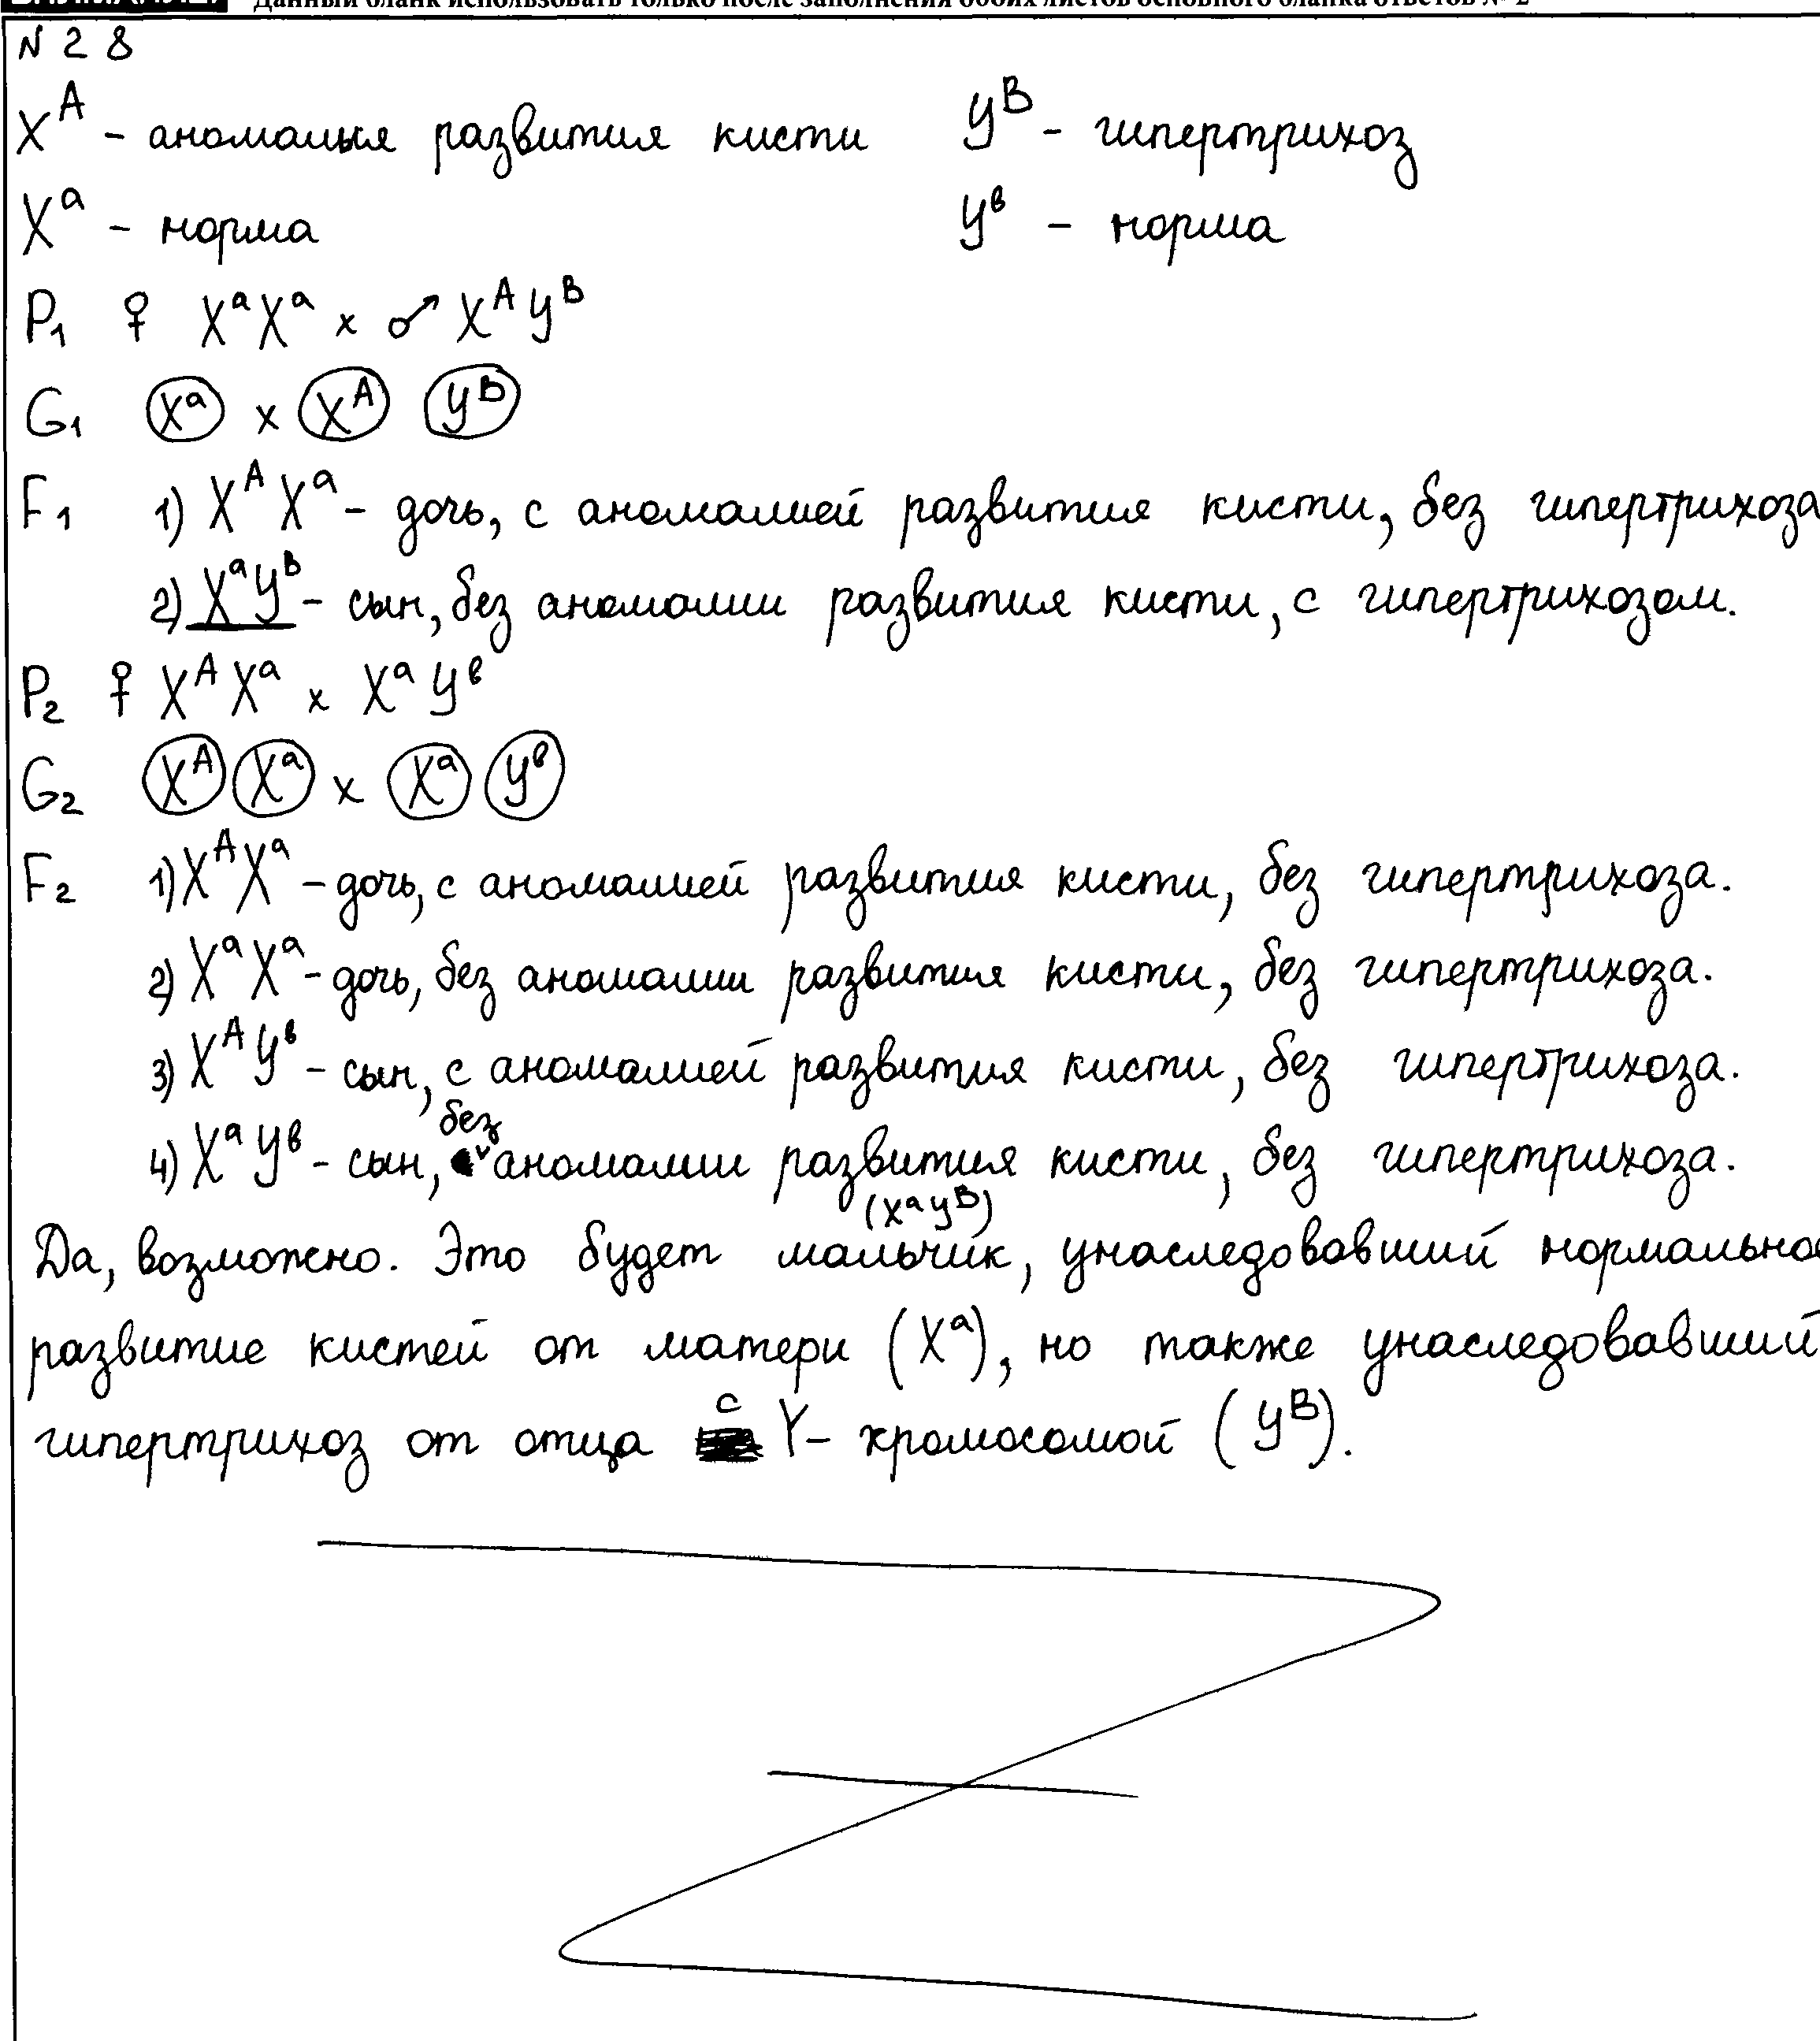 Данный бланк использовать только после заполнения обоих листов основного бланка ответов № 2
N 28
X^A - аномалия развития кисти   y^B - гипертрихоз
X^a - норма   y^b - норма
P1 ♀ X^a X^a x ♂ X^A y^B
G1 X^a x X^A y^B
F1 1) X^A X^a - дочь, с аномалией развития кисти, без гипертрихоза
2) X^a y^B - сын, без аномалии развития кисти, с гипертрихозом.
P2 ♀ X^A X^a x X^a y^b
G2 X^A X^a x X^a y^b
F2 1) X^A X^a - дочь, с аномалией развития кисти, без гипертрихоза.
2) X^a X^a - дочь, без аномалии развития кисти, без гипертрихоза.
3) X^A y^b - сын, с аномалией развития кисти, без гипертрихоза.
4) X^a y^b - сын, без аномалии развития кисти, без гипертрихоза.
Да, возможно. Это будет мальчик (X^a y^B), унаследовавший нормальное
развитие кистей от матери (X^a), но также унаследовавший
гипертрихоз от отца с Y- хромосомой (y^B).